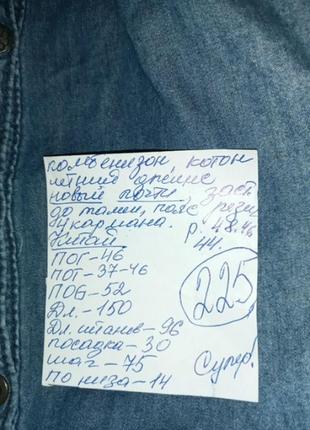 комбенизон, котон
летний
новый почти, заст
до талии, пояс рези
4 кармана. р. 48-46
Китай. 44.
ПОГ-46
ПОТ-37-46
ПОБ-52
Дл.-150
Дл. штанов-96
посадка-30
шаг-75
ПО низа-14
225
Супер!